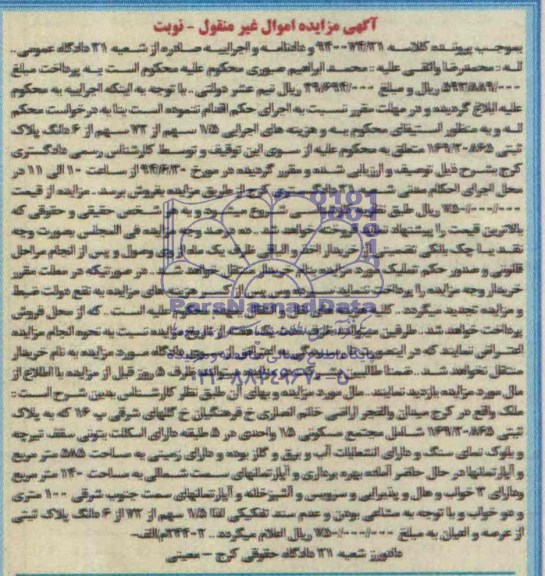 آگهی مزایده اموال غیر منقول - نوبت
بموجب پرونده کلاسه ۹۴۰۰۷۴/۳۱ و دادنامه و اجراییه صادره از شعبه ۳۱ دادگاه عمومی..
له : محمدرضا واثقی علیه : محمد ابراهیم صبوری محکوم علیه محکوم است به پرداخت مبلغ
۵۹۳/۸۸۹/۰۰۰ ریال و مبلغ ۲۹/۶۹۴/۰۰۰ ریال نیم عشر دولتی .. با توجه به اینکه اجراییه به محکوم
علیه ابلاغ گردیده و در مهلت مقرر نسبت به اجرای حکم اقدام ننموده است بنا به درخواست محکم
له و به منظور استیفای محکوم به و هزینه های اجرایی ۱/۵ سهم از ۷۲ سهم از ۶ دانگ پلاک
ثبتی متعلق به محکوم علیه از سوی این توقیف و توسط کارشناس رسمی دادگستری
کرج بشرح ذیل توصیف و ارزیابی شده و مقرر گردیده در مورخ ۹۴/۶/۳۰ از ساعت ۱۰ الی ۱۱ در
محل اجرای احکام مدنی شعبه ۳۱ دادگستری کرج از طریق مزایده بفروش برسد . مزایده از قیمت
ریال طبق نظر کارشناسی شروع میشود و به هر شخص حقیقی و حقوقی که
بالاترین قیمت را پیشنهاد نماید فروخته خواهد شد .. ده درصد وجه مزایده فی المجلس بصورت وجه
نقد یا چک بانکی تضمینی از خریدار اخذ و الباقی ظرف یک ماه از وی وصول و پس از انجام مراحل
قانونی و صدور حکم تملیک مورد مزایده بنام خریدار منتقل خواهد شد .. در صورتیکه در مهلت مقرر
خریدار وجه مزایده را پرداخت ننماید سپرده وی پس از کسر هزینه های مزایده به نفع دولت ضبط
و مزایده تجدید میگردد .. کلیه هزینه های نقل و انتقال بعهده محکوم علیه است .. که از محل فروش
پرداخت خواهد شد . طرفین میتوانند ظرف مدت یک هفته از تاریخ مزایده نسبت به نحوه انجام مزایده
اعتراض نمایند که در اینصورت تا رسیدگی و اتخاذ تصمیم دادگاه مورد مزایده به نام خریدار
منتقل نخواهد شد.. ضمنا طالبین شرکت در مزایده میتوانند ظرف ۵ روز قبل از مزایده با اطلاع از
مال مورد مزایده بازدید نمایند.. مال مورد مزایده و بهای آن طبق نظر کارشناس بدین شرح است :
ملک واقع در کرج میدان والفجر اراضی خاتم انصاری خ فرهنگیان خ گلهای شرقی پ ۱۶ که به پلاک
ثبتی شامل مجتمع مسکونی ۱۵ واحدی در ۵ طبقه دارای اسکلت بتونی سقف تیرچه
و بلوک نمای سنگ و دارای انشعابات آب و برق و گاز بوده و دارای زمینی به مساحت ۵۸۵ متر مربع
و آپارتمانها در حال حاضر آماده بهره برداری و آپارتمانهای سمت شمالی به مساحت ۱۴۰ متر مربع
ودارای ۳ خواب و هال و پذیرایی و سرویس و آشپزخانه و آپارتمانهای سمت جنوب شرقی ۱۰۰ متری
و دو خواب و با توجه به مشاعی بودن و عدم سند تفکیکی لذا ۱/۵ سهم از ۷۲ از ۶ دانگ پلاک ثبتی
از عرصه و اعیان به مبلغ ریال اعلام میگردد ..
دادورز شعبه ۳۱ دادگاه حقوقی کرج - معینی
ParsNamadData
۰۲۱-۸۸۳۴۹۶۷۰-۵